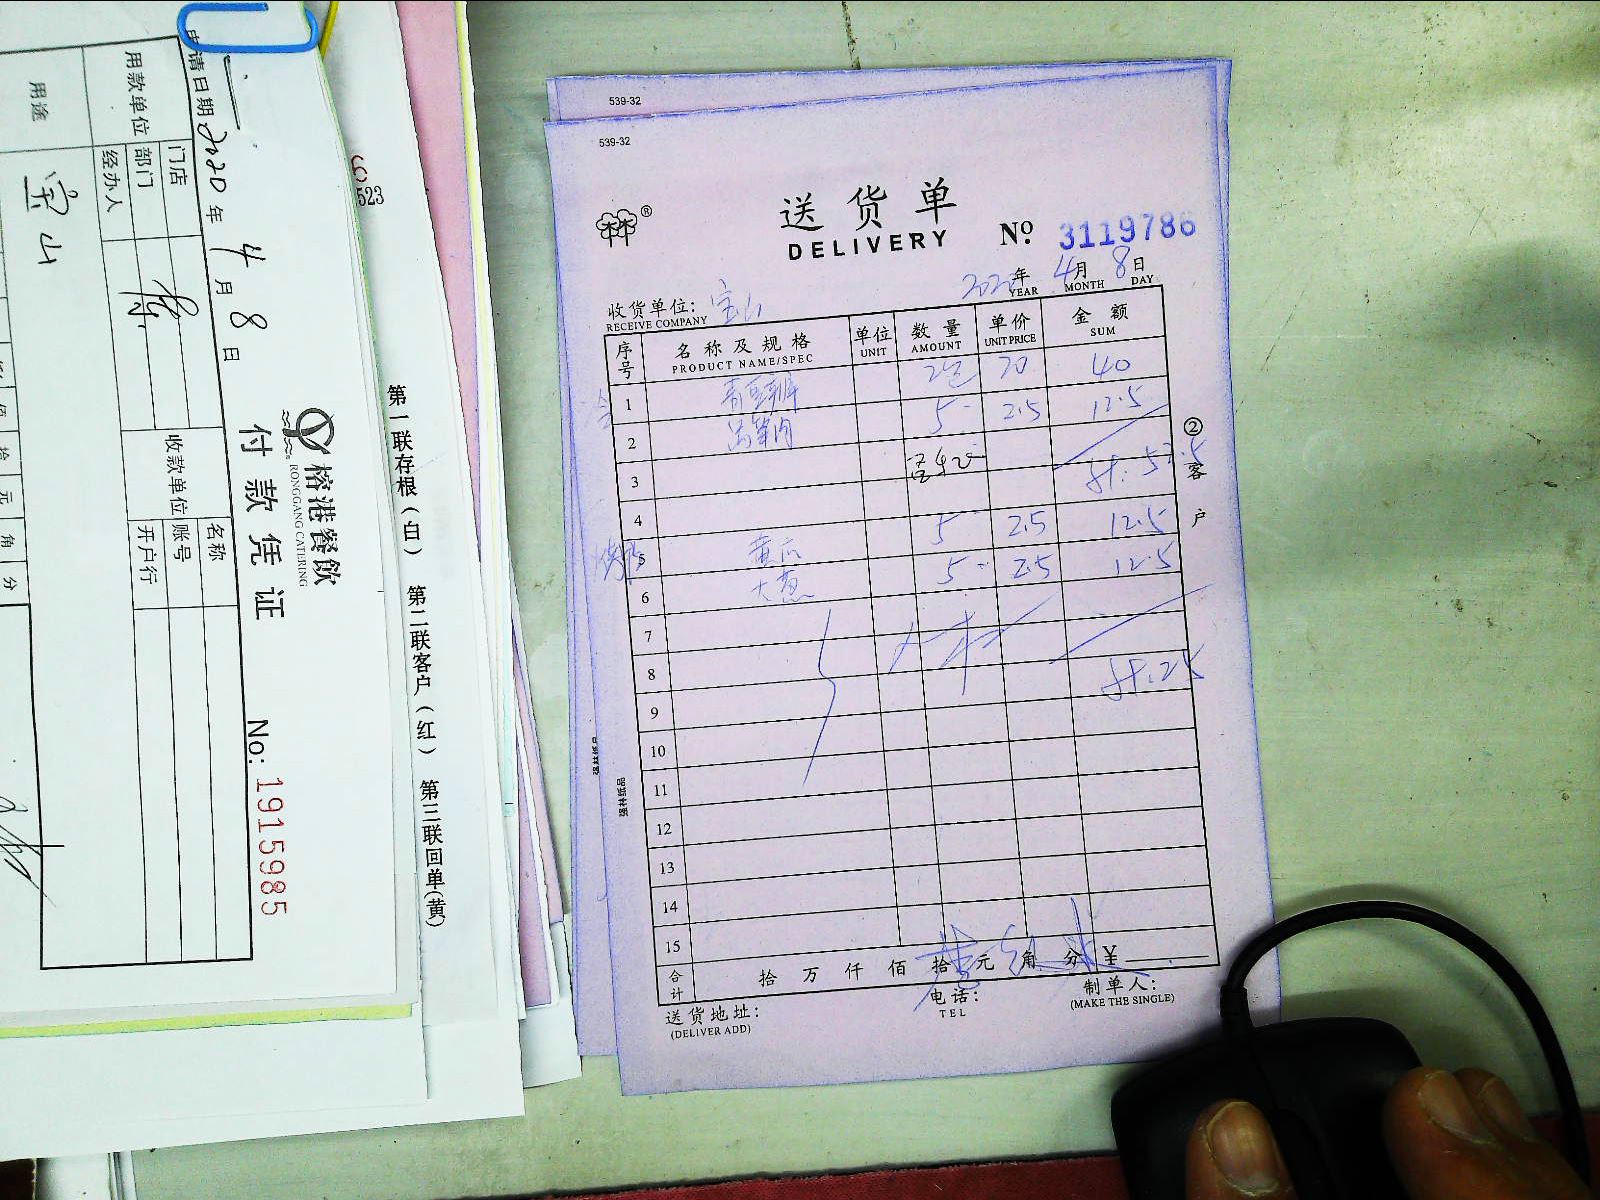 申请日期 2020 年 4 月 8 日
用款单位
门店
部门
经办人
用途
宝山
收款单位
名称
账号
开户行
拾 元 角 分
榕港餐飲
RONGGANG CATERING
付款凭证
No: 1915985
第一联存根(白) 第二联客户(红) 第三联回单(黄)
523
539-32
539-32
送货单
DELIVERY
No. 3119786
2020 年 4 月 8 日
YEAR MONTH DAY
收货单位: 宝山
RECEIVE COMPANY
序号 名称及规格 单位 数量 单价 金额
PRODUCT NAME/SPEC UNIT AMOUNT UNIT PRICE SUM
1 2包 20 40
2 5 2.5 12.5
3 53.5
4 5 2.5 12.5
5 黄瓜 5 2.5 12.5
6 大葱
7
8 25
9
10
11
12
13
14
15
合计 拾 万 仟 佰 拾 元 角 分 ¥
送货地址:
(DELIVER ADD)
电话:
TEL
制单人:
(MAKE THE SINGLE)
② 客户
强林纸品